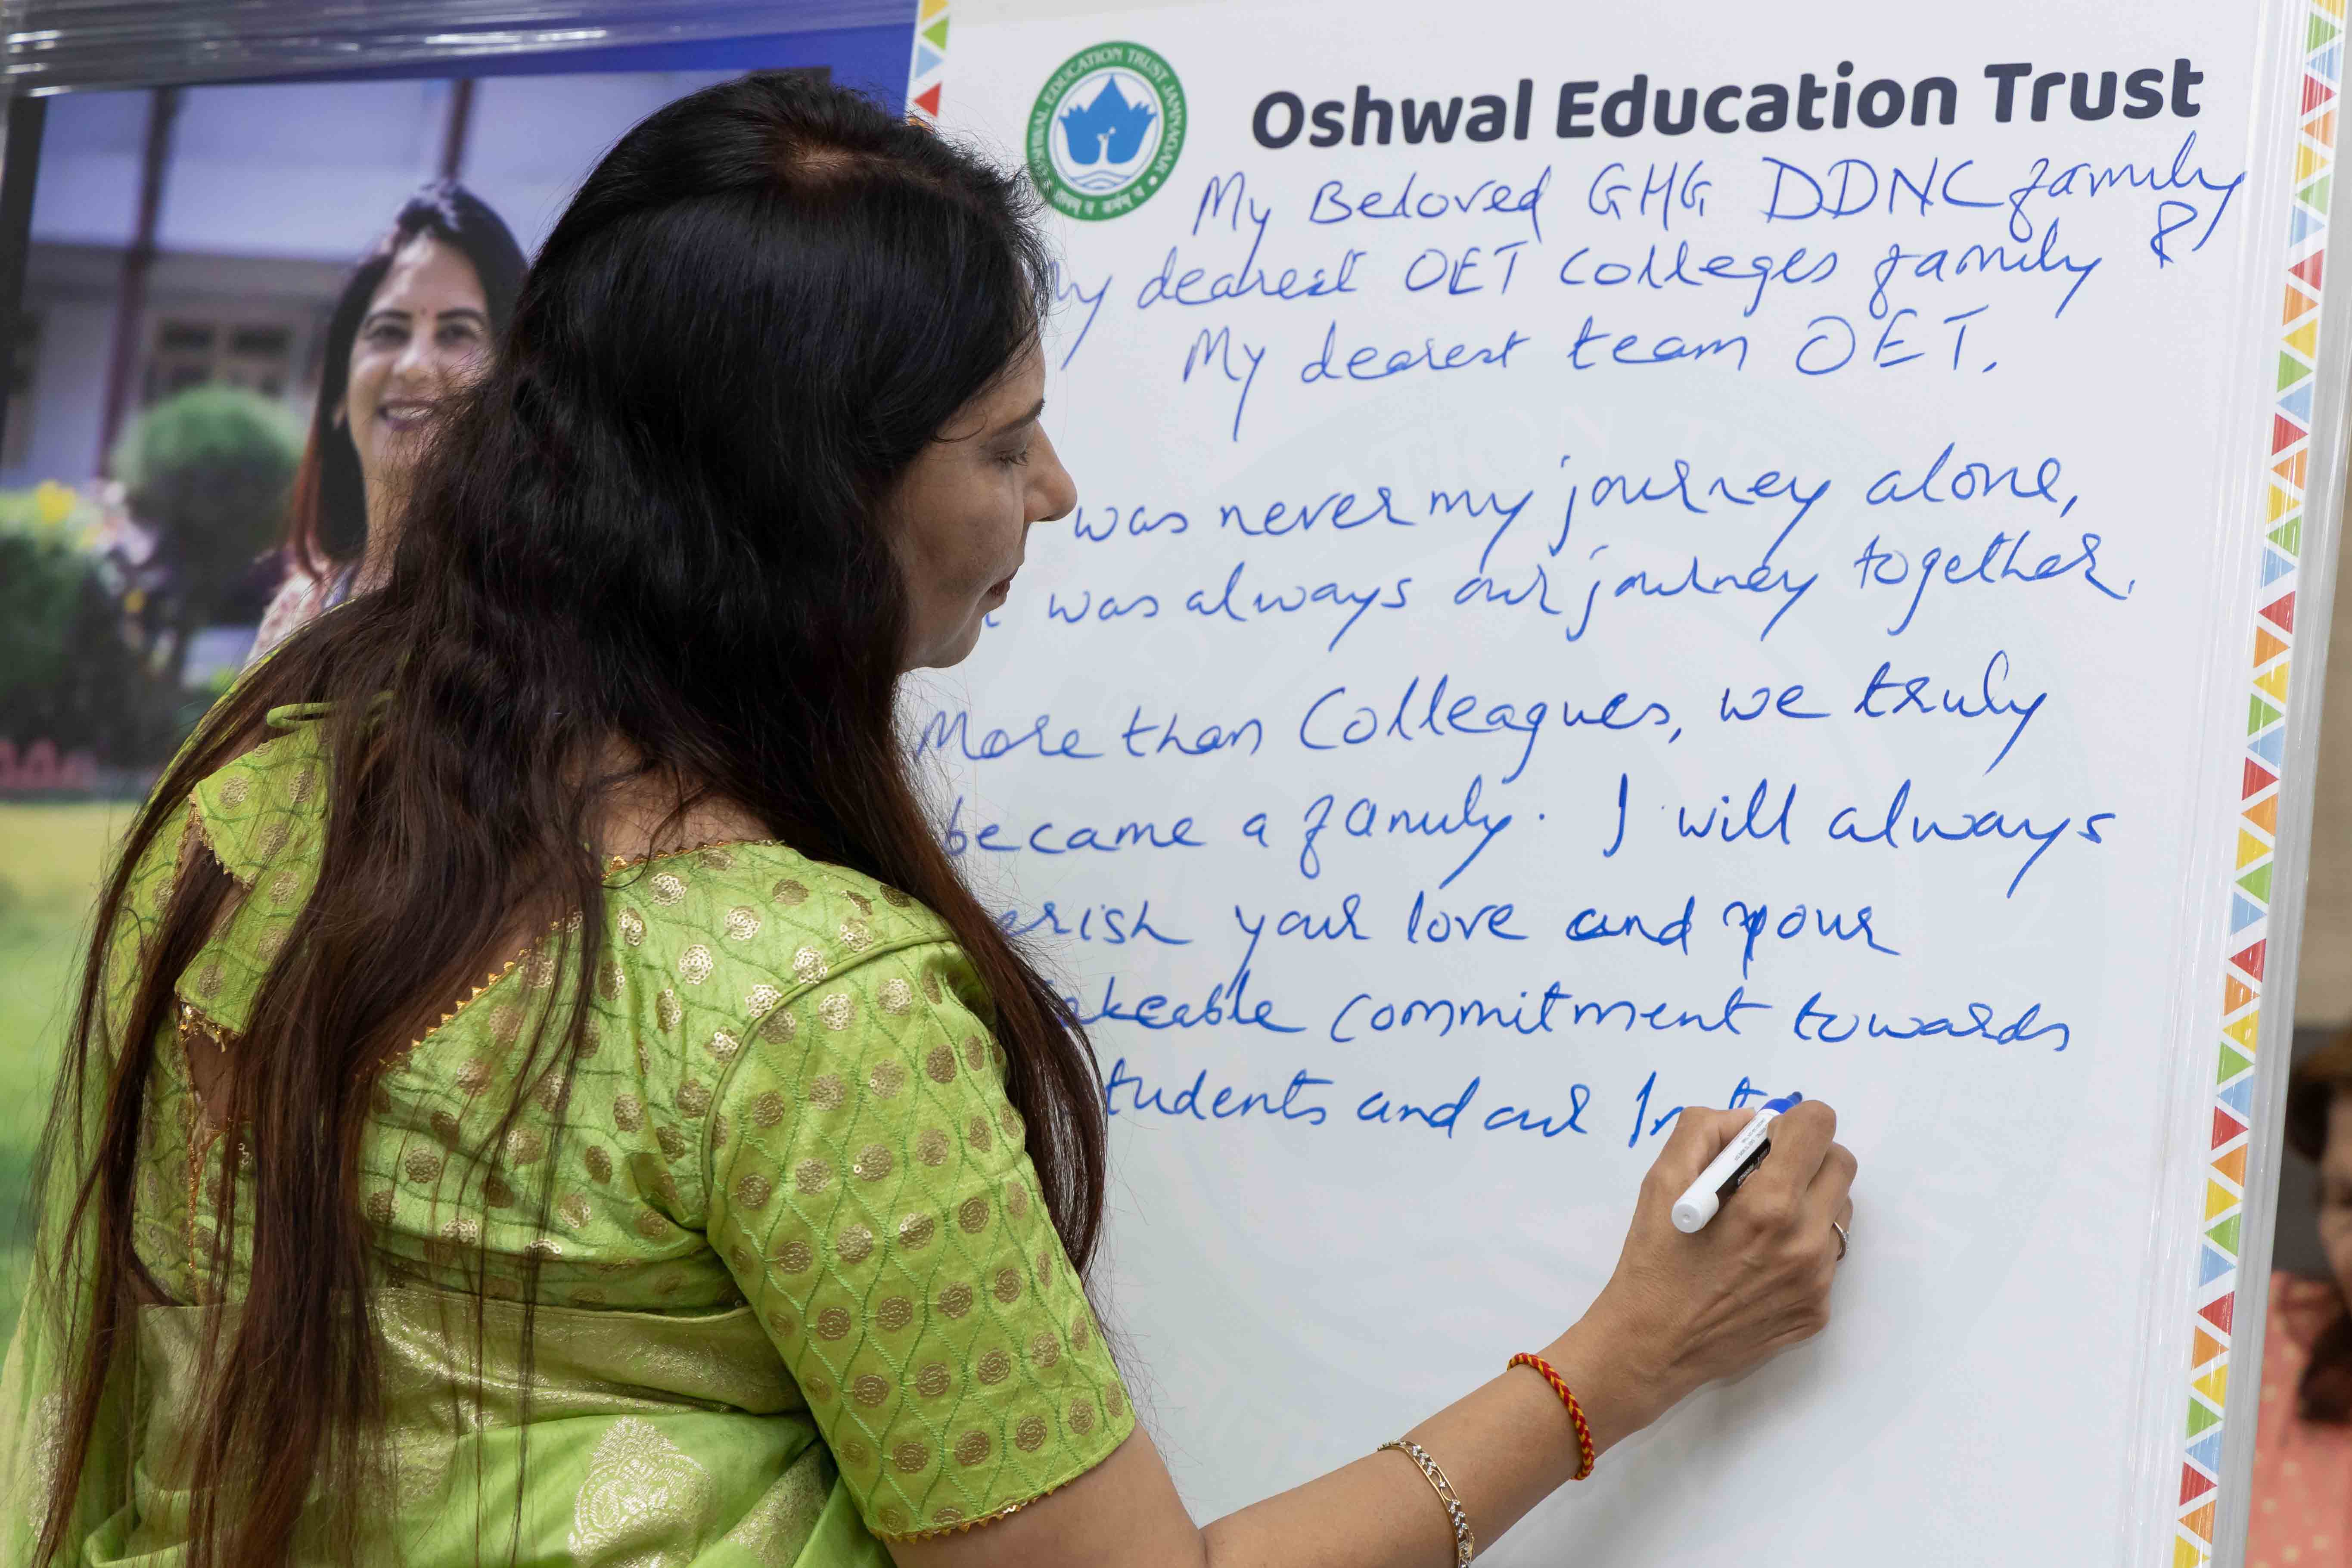 Oshwal Education Trust
OSHWAL EDUCATION TRUST JAMNAGAR
My Beloved GHG DDNC family
my dearest OET Colleges family &
My dearest team OET.
was never my journey alone,
was always our journey together.
More than Colleagues, we truly
became a family. I will always
erish your love and your
akeable commitment towards
tudents and our